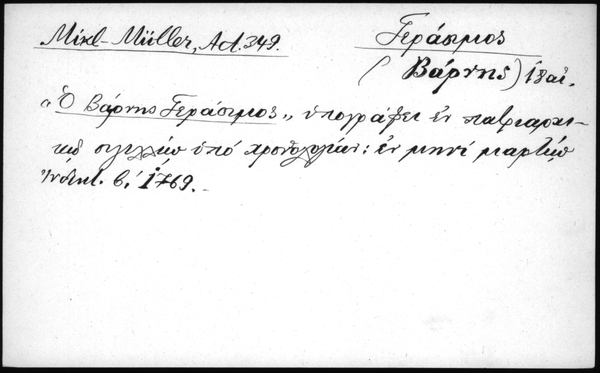 Mikl-Müller, Act. 349.
Γεράσιμος
(Βάρνης) 18 αἰ.
"Ὁ Βάρνης Γεράσιμος" ὑπογράφει ἐν πατριαρχι-
κῷ σιγιλλίῳ ὑπό χρονολογίαν: ἐν μηνί μαρτίῳ
Ἰνδικτ. β. 1769.